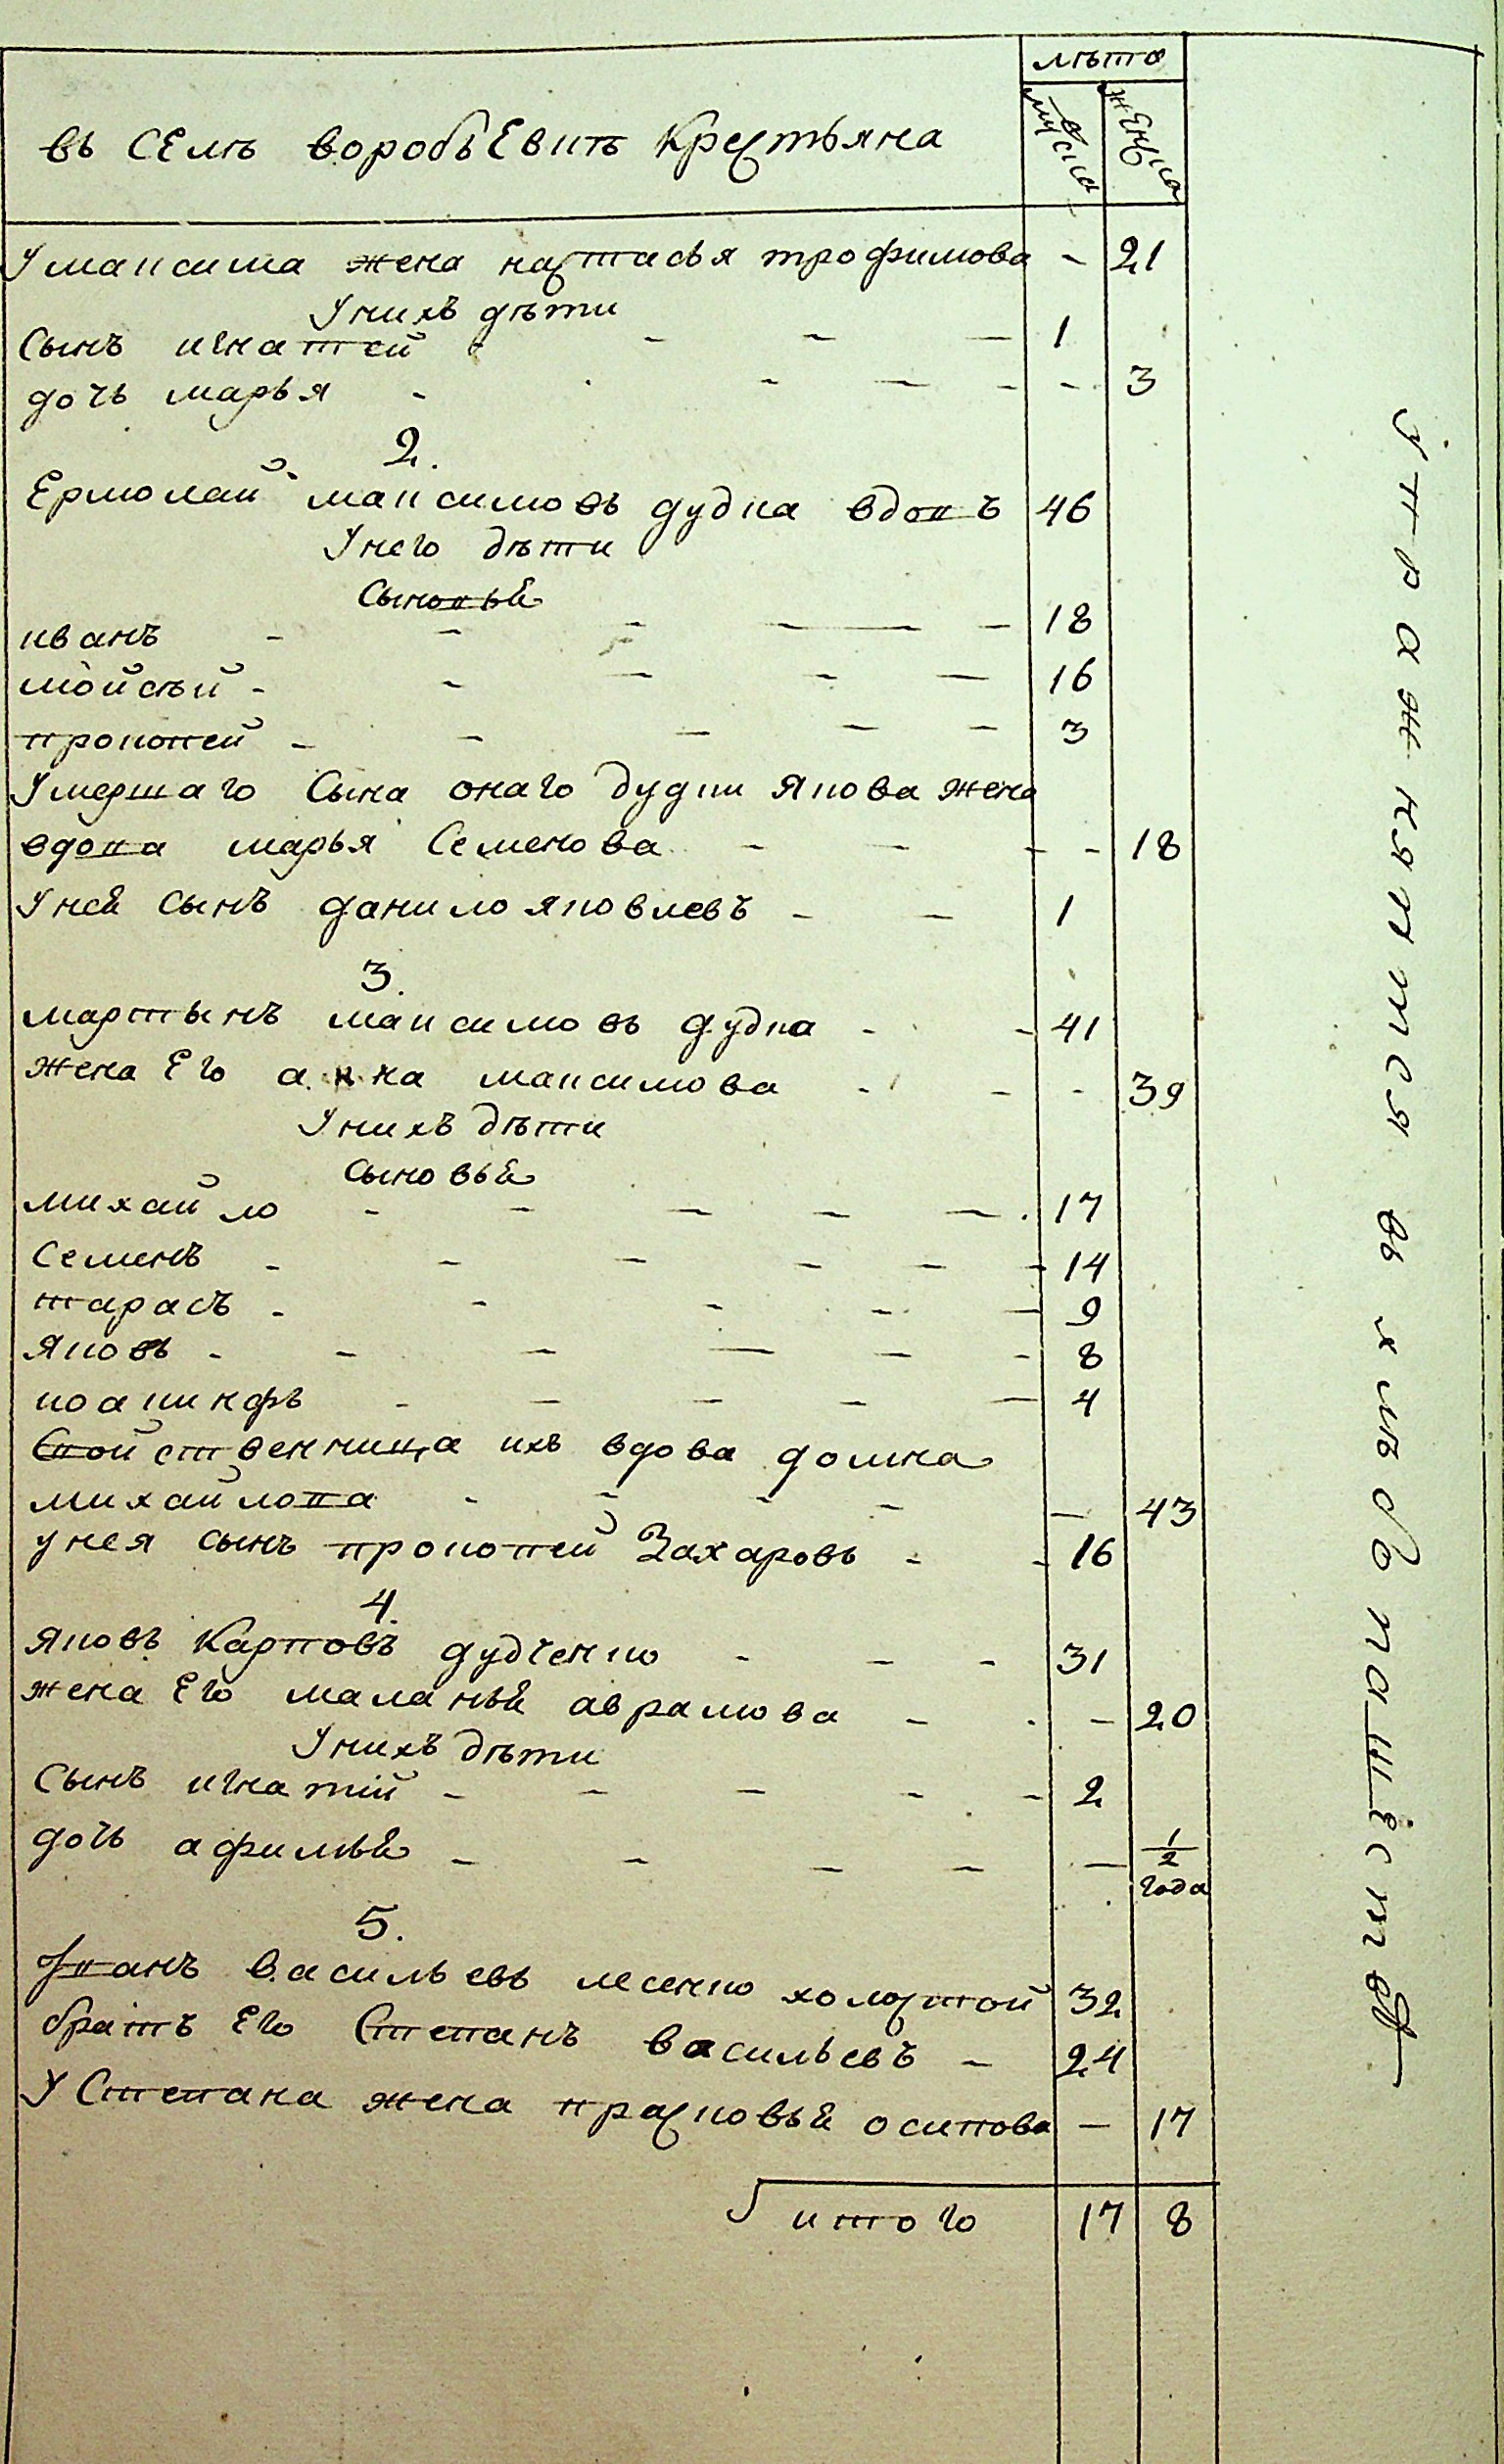 лѣта
мужска
женска
въ селѣ воробьевкѣ крестьяна
У максима жена настасья трофимова - 21
У нихъ дѣти
Сынъ игнатей - - - 1
дочь марья - - - - - 3
2.
Ермолай максимовъ дудка вдовъ 46
У него дѣти
Сыновья
иванъ - - - - - 18
мойсѣй - - - - - 16
прокопей - - - - - 3
Умершаго Сына онаго дудки якова жена
вдова марья Семенова - - - - 18
У ней сынъ данило яковлевъ - - 1
3.
мартынъ максимовъ дудка - - 41
жена Его анна максимова - - - 39
У нихъ дѣти
Сыновья
михайло - - - - - 17
Семенъ - - - - - - 14
тарасъ - - - - - 9
яковъ - - - - - - 8
иоаникфъ - - - - - 4
Свойственница ихъ вдова домна
михайлова - - - - - 43
у нея сынъ прокопей Захаровъ - - 16
4.
яковъ Карповъ дудченко - - - 31
жена Его маланья аврамова - - - 20
У нихъ дѣти
Сынъ игнатій - - - - - 2
дочь афимья - - - - - 1/2
года
5.
Іванъ васильевъ лесенко холостой 32
братъ Его Степанъ васильевъ - 24
У Степана жена прасковья осипова - 17
итого 17 8
упражняются въ хлѣбопашествѣ